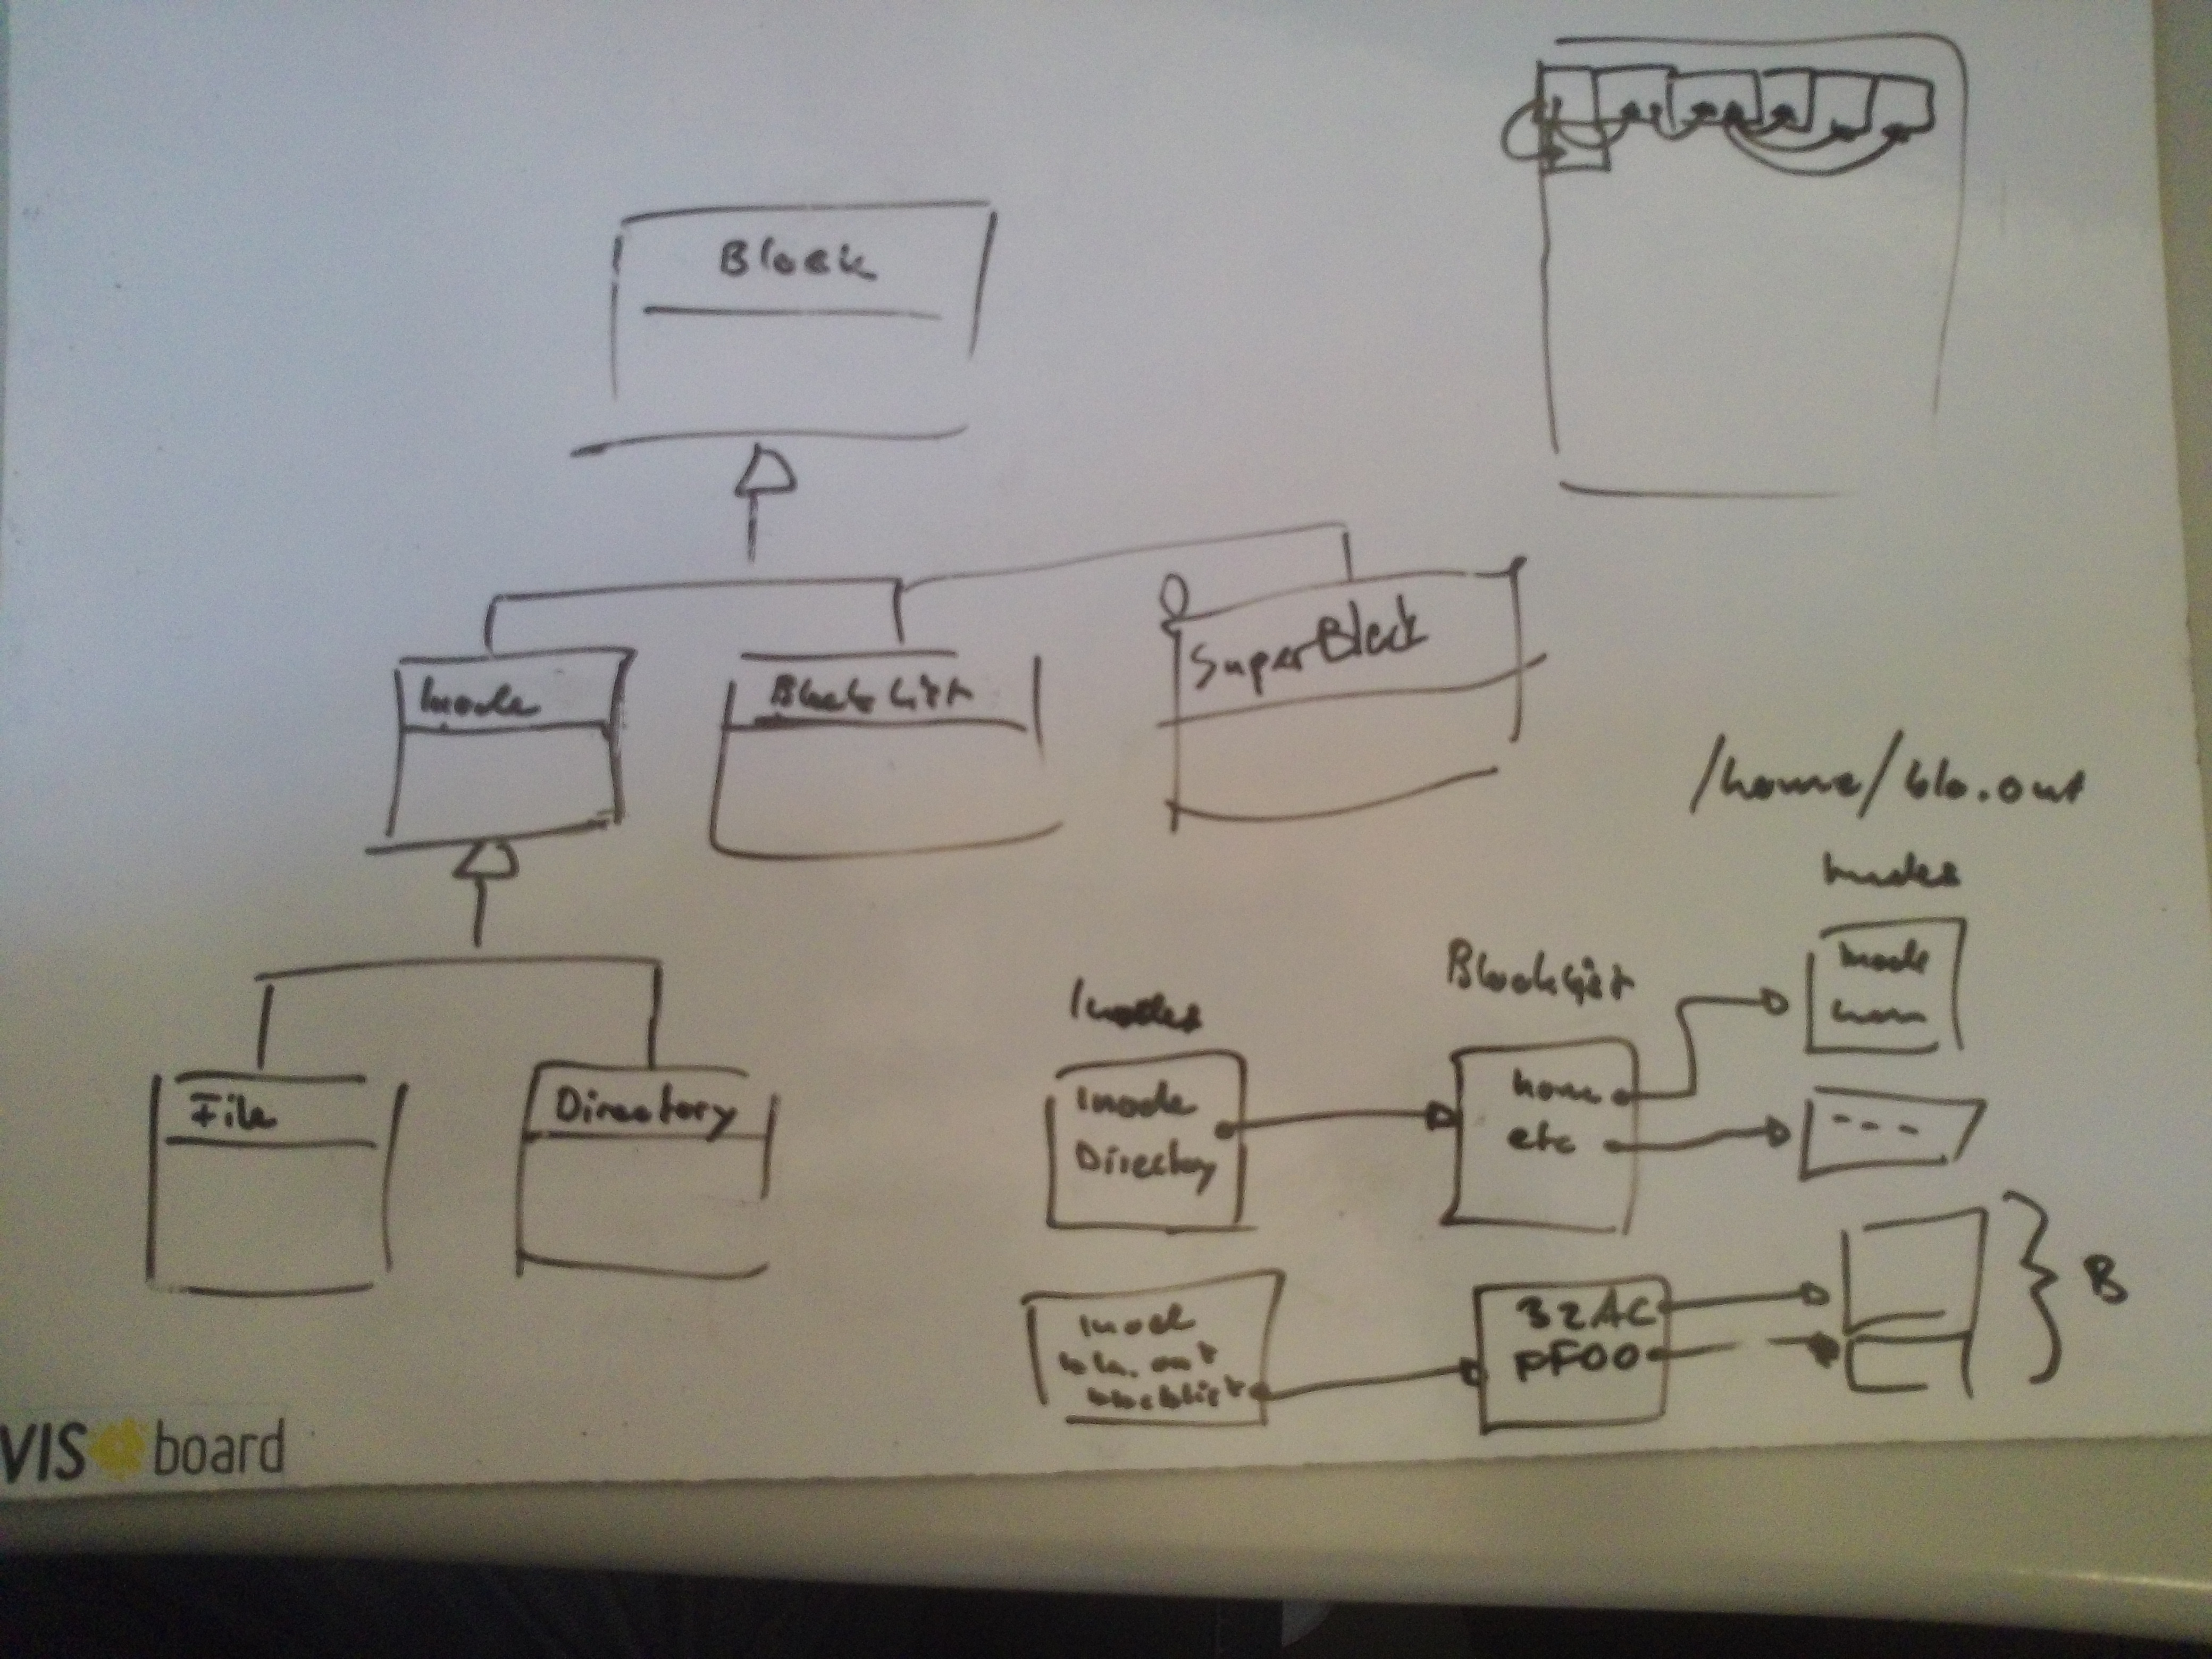 Block
Inode
BlockList
SuperBlock
File
Directory
/home/blo.out
Inodes
Inode
home
Inodes
BlockList
Inode
Directory
home
etc
---
Inode
blocklist
32AC
PF00
B
VIS board